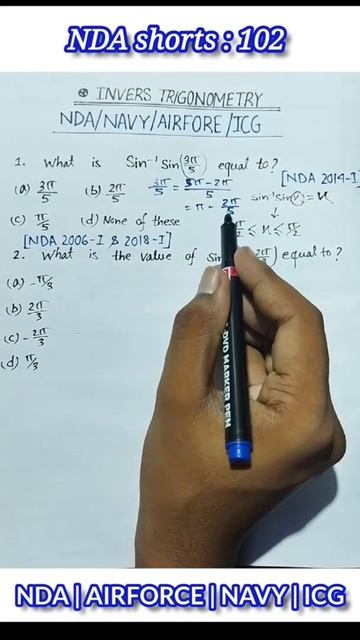 NDA shorts : 102
INVERS TRIGONOMETRY
NDA/NAVY/AIRFORE/ICG
1. What is Sin⁻¹ Sin(3π/5) equal to?
[NDA 2014-I]
(a) 3π/5 (b) 2π/5 3π/5 = 5π-2π/5 Sin⁻¹ Sin(x) = x
= π - 2π/5
(c) π/5 (d) None of these π/2 ≤ x ≤ π/2
[NDA 2006-I & 2018-I]
2. What is the value of Sin 2π/3) equal to?
(a) -π/3
(b) 2π/3
(c) -2π/3
(d) π/3
DVD MARKER PEN
NDA|AIRFORCE|NAVY|ICG